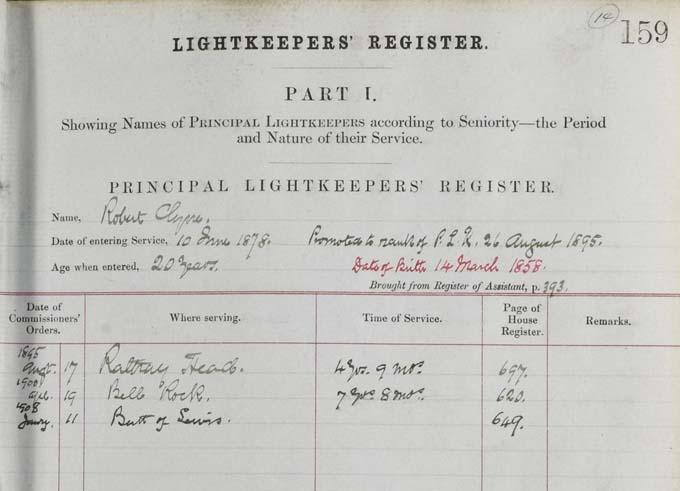 14
159
LIGHTKEEPERS' REGISTER.
PART I.
Showing Names of PRINCIPAL LIGHTKEEPERS according to Seniority—the Period
and Nature of their Service.
PRINCIPAL LIGHTKEEPERS' REGISTER.
Name, Robert Clyne.
Date of entering Service, 10 June 1878. Promoted to rank of P.L.K. 26 August 1895.
Age when entered, 20 Years. Date of Birth 14 March 1858.
Brought from Register of Assistant, p. 393.
Date of Commissioners' Orders. Where serving. Time of Service. Page of House Register. Remarks.
1895
Augt. 17 Rattray Head. 4 Yrs. 9 Mos. 697.
1900
Apl. 19 Bell Rock. 7 Yrs. 8 Mos. 620.
1908
Jany. 11 Butt of Lewis. 649.